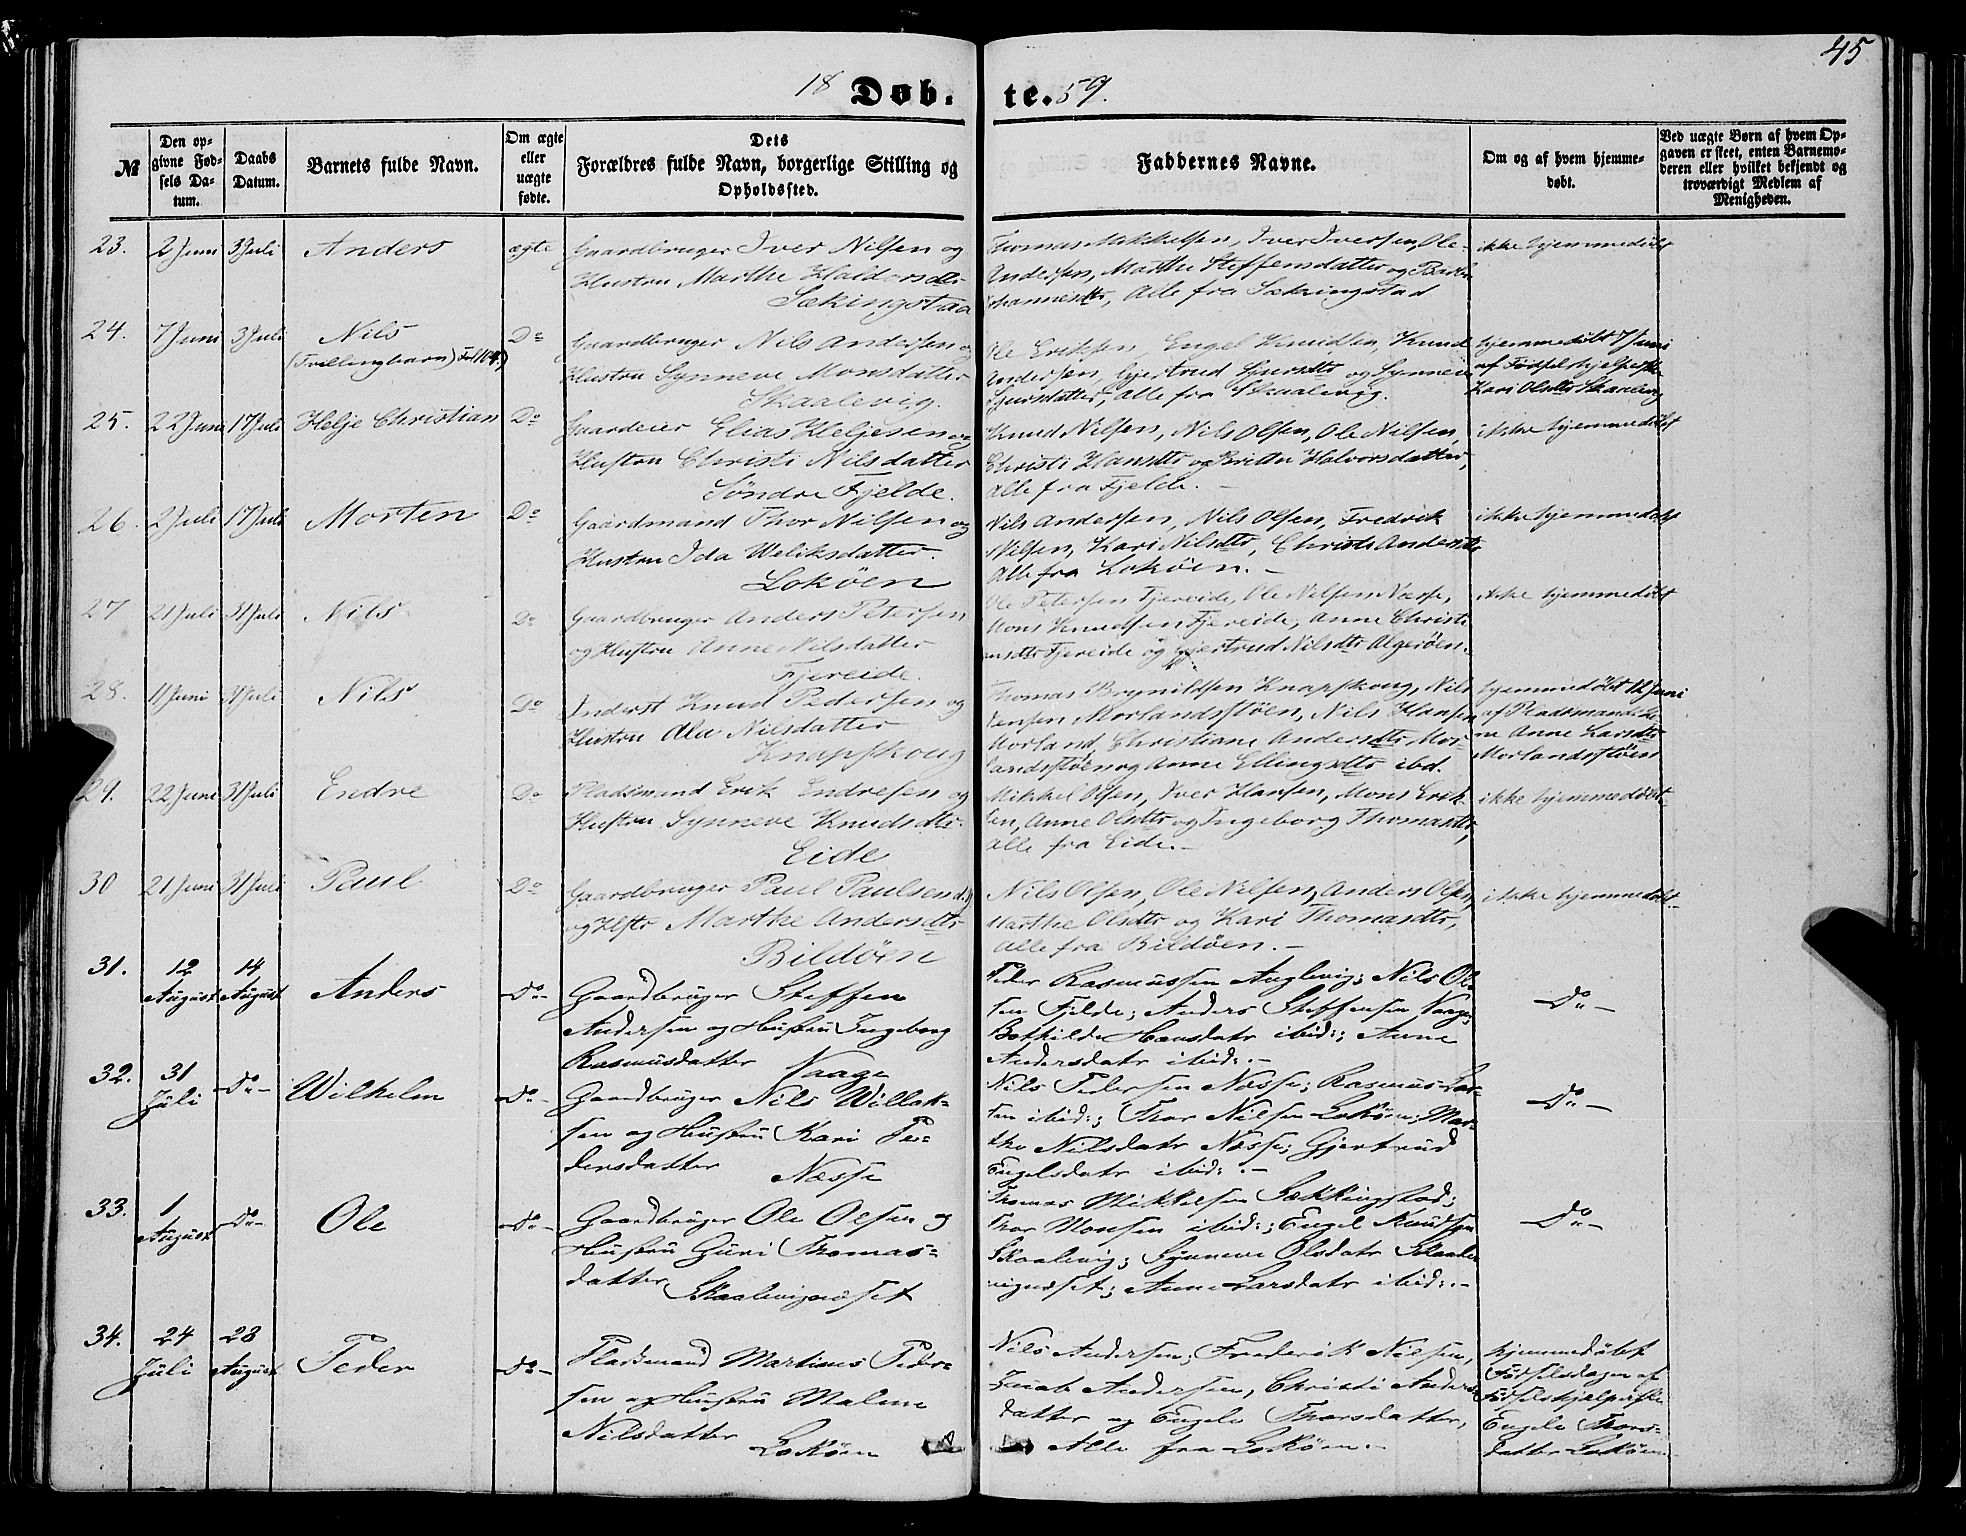 45
18 Døb. te. 59.
№
Den op-
givne Fød-
sels Da-
tum.
Daabs
Datum.
Barnets fulde Navn.
Om ægte
eller
uægte
fødte.
Dets
Forældres fulde Navn, borgerlige Stilling og
Opholdssted.
Faddernes Navne.
Om og af hvem hjemme-
døbt.
Ved uægte Børn af hvem Op-
gaven er skeet, enten Barnemo-
deren eller hvilket bekjendt og
troværdigt Medlem af
Menigheden.
23. 2 Juni 3 Juli Anders ægte Gaardbruger Iver Nilsen og
Hustru Marthe Haldorsdtr
Sækingstaa
Thomas Mikkelsen, Iver Iversen, Ole
Andersen, Marthe Steffensdatter og
Johannesdtr, Alle fra Sækingstad
ikke hjemmedøbt
24. 7 Juni 3 Juli Nils Do Gaardbruger Nils Andersen og
(Trillingbarn)
Hustru Synneve Monsdatter
Skaalevig.
Ole Eriksen, Engel Knudsen, Knud
Andersen, Gjertrud Sjursdtr og Synneve
Sjursdatter, alle fra Skaalevig.
hjemmedøbt 7 Juni
af Fødselshjelperske
Kari Olsdtr Skaalevig
25. 22 Juni 17 Juli Helje Christian Do Gaardeier Elias Heljesen og
Hustru Christi Nilsdatter
Søndre Fjelde.
Knud Nilsen, Nils Olsen, Ole Nilsen,
Christi Hansdtr og Britta Halvorsdatter,
alle fra Fjelde. -
ikke hjemmedøbt
26. 2 Juli 17 Juli Morten Do Gaardmand Thor Nilsen og
Hustru Ida Weliksdatter.
Lokøen
Nils Andersen, Nils Olsen, Fredrik
Nilsen, Kari Nilsdtr, Christi Andersdtr
Alle fra Lokøen. -
ikke hjemmedøbt
27 21 Juli 31 Juli Nils Do Gaardbruger Anders Petersen
og Hustru Anne Nilsdatter
Fjereide.
Ole Petersen Fjereide, Ole Nilsen Næsse,
Mons Knudsen Fjereide, Anne Christi
Fjereide og Gjertrud Nilsdtr Algerøen.
ikke hjemmedøbt
28. 11 Juni 31 Juli Nils Do Inderst Knud Pedersen og
Hustru Ala Nilsdatter
Knapskoug
Thomas Brynildsen Knapskoug, Nils
Jensen Morlandsstøen, Nils Hansen
Morland, Christiane Andersdtr Mor-
landsstøen og Anne Ellingsdtr ibd.
hjemmedøbt 12 Juni
af Pladsmands
Anne Larsdtr
Morlandsstøen
29. 22 Juni 31 Juli Endre Do Pladsmand Erik Endresen og
Hustru Synneve Knudsdtr.
Eide
Mikkel Olsen, Iver Hansen, Mons Erik-
sen, Anne Olsdtr og Ingeborg Thomasdtr,
alle fra Eide. -
ikke hjemmedøbt
30 21 Juni 31 Juli Paul Do Gaardbruger Paul Paulsen
og Hstr Marthe Andersdtr
Bildøen
Nils Olsen, Ole Nilsen, Anders Olsen,
Marthe Olsdtr og Kari Thomasdtr,
Alle fra Bildøen. -
ikke hjemmedøbt
31. 12 August 14 August Anders Do- Gaardbruger Steffen
Andersen og Hustru Ingeborg
Rasmusdatter Vaage
Peder Rasmussen Anglevig; Nils Ol-
sen Fjelde; Anders Steffensen Vaage;
Bothilde Hansdatr ibid:; Anne
Andersdatr ibid:. -
Do -
32. 31 Juli Do- Wilhelm Do- Gaardbruger Nils Willak-
sen og Hustru Kari Pe-
dersdatter Næsse
Nils Pedersen Næsse; Rasmus Lar-
sen ibid:; Thor Nilsen Lokøen; Mar-
the Nilsdatr Næsse; Gjertrud
Engelsdatr ibid:. -
Do -
33. 1 August Do- Ole Do- Gaardbruger Ole Olsen og
Hustru Guri Thomas-
datter Skaalevignæset
Thomas Mikkelsen Sækkingstad;
Thor Monsen ibid:; Engel Knudsen
Skaalevig; Synneve Olsdatr Skaale-
vignæset; Anne Larsdatr ibid:. -
Do -
34. 24 Juli 28 August Peder Do- Pladsmand Martinus Peder-
sen og Hustru Malene
Nilsdatter Lokøen
Nils Andersen, Frederik Nilsen,
Jacob Andersen, Christi Anders-
datter og Engele Thorsdatter,
Alle fra Lokøen. -
hjemmedøbt
Fødselsdagen af
Fødselshjelperske
Engele Thors-
datter Lokøen